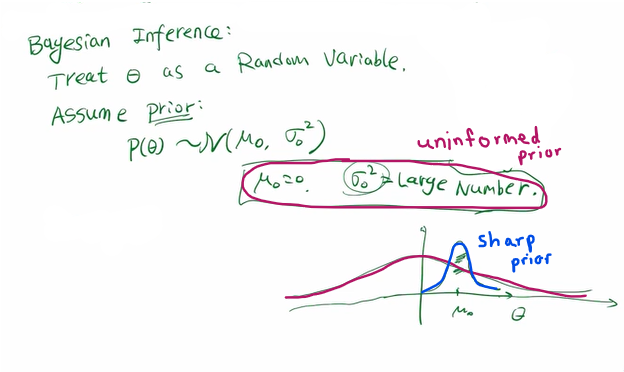 Bayesian Inference:
Treat θ as a Random Variable.
Assume prior:
P(θ) ~ N(μ₀, σ₀²)
uninformed
prior
μ₀=0. σ₀² = Large Number.
sharp
prior
μ₀
θ